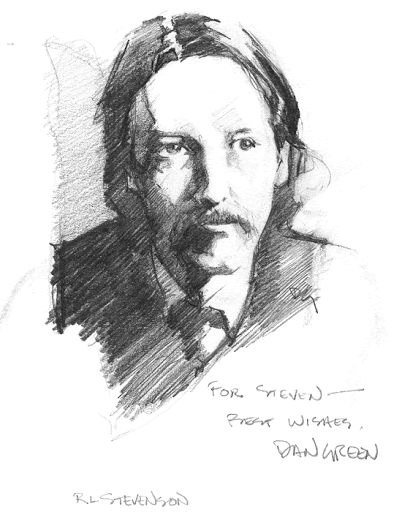 FOR STEVEN—
BEST WISHES.
DAN GREEN
R L STEVENSON